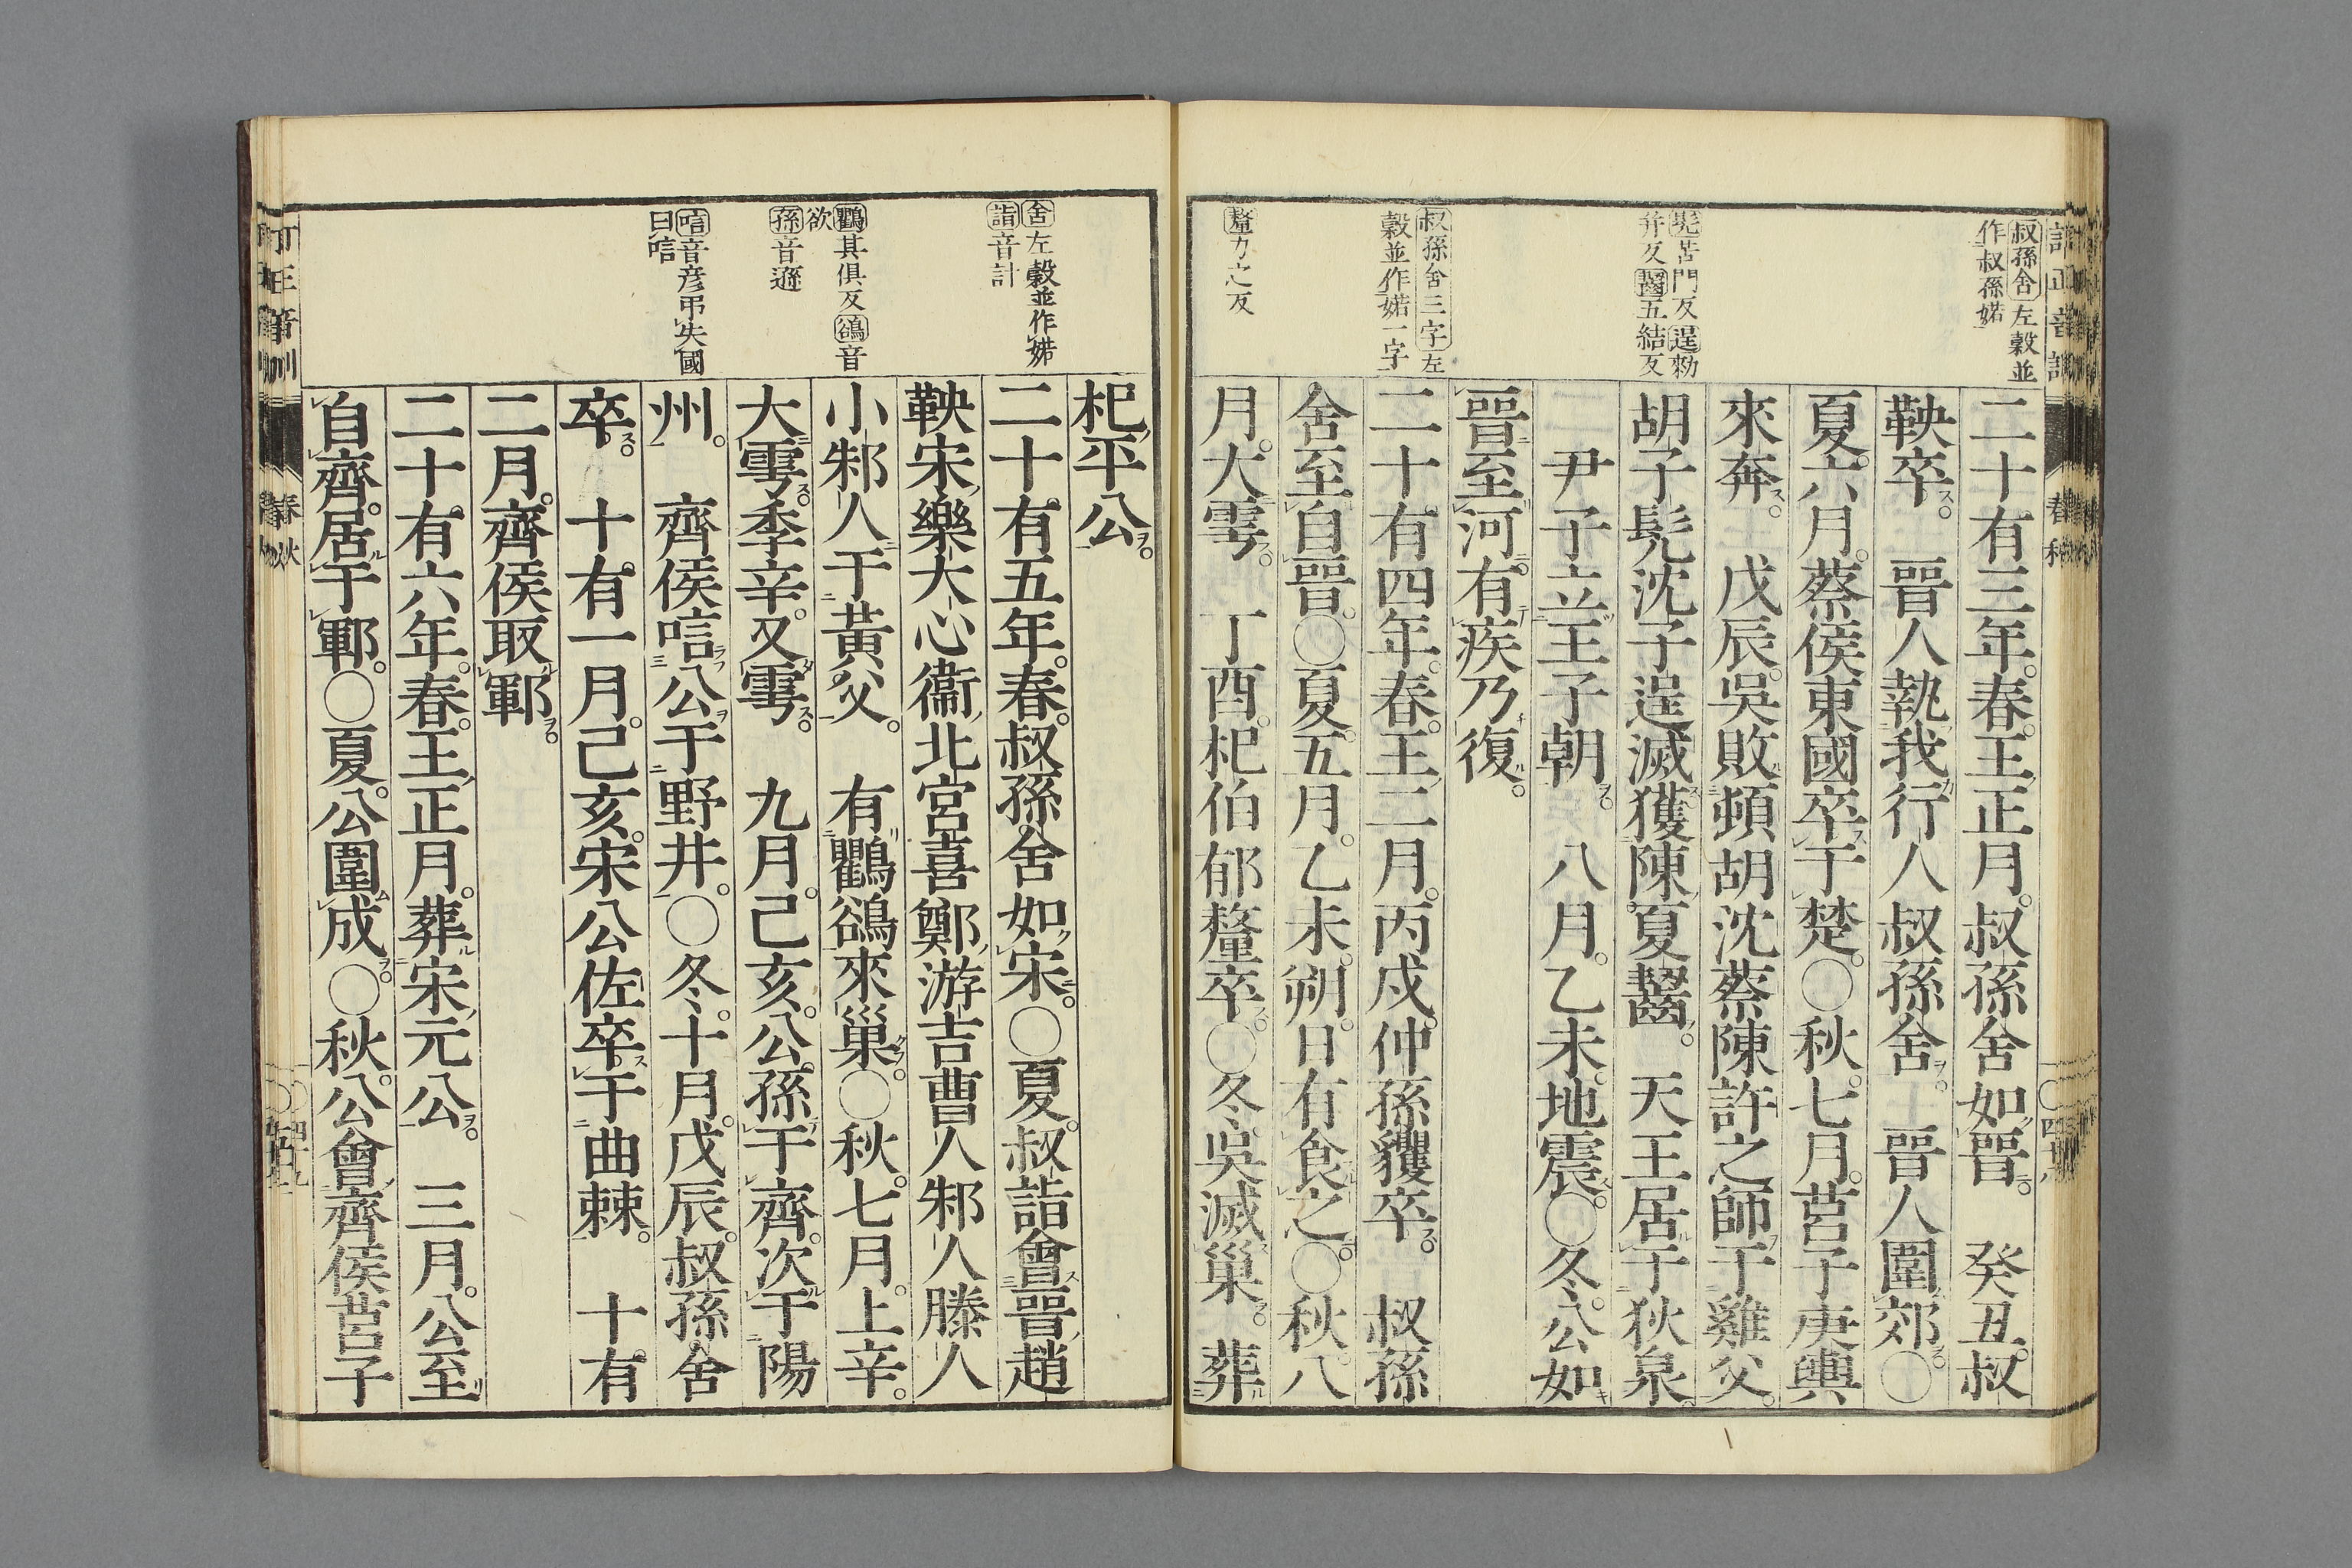 叔孫舍左穀並
作叔孫婼
髡苦門反逞勑
幷反齧五結反
叔孫舍三字左
穀並作婼一字
釐力之反
二十有三年。春。王正月。叔孫舍如晉。 癸丑。叔
鞅卒。 晉人執我行人叔孫舍。 晉人圍郊。〇
夏。六月。蔡侯東國卒于楚。〇秋。七月。莒子庚輿
來奔。 戊辰。吳敗頓胡沈蔡陳許之師于雞父。
胡子髡沈子逞滅獲陳夏齧。 天王居于狄泉。
尹子立王子朝。 八月。乙未。地震。〇冬。公如
晉至河。有疾乃復。
二十有四年。春。王二月。丙戌。仲孫貜卒。 叔孫
舍至自晉。〇夏。五月。乙未。朔。日有食之。〇秋。八
月。大雩。 丁酉。杞伯郁釐卒。〇冬。吳滅巢。 葬
舍左穀並作婼
詣音計
鸜其俱反鵒音
欲
孫音遜
唁音彥弔失國
曰唁
杞平公。
二十有五年。春。叔孫舍如宋。〇夏。叔詣會晉趙
鞅宋樂大心衞北宮喜鄭游吉曹人邾人滕人
小邾人于黃父。 有鸜鵒來巢。〇秋。七月。上辛。
大雩。季辛。又雩。 九月。己亥。公孫于齊。次于陽
州。 齊侯唁公于野井。〇冬。十月。戊辰。叔孫舍
卒。 十有一月。己亥。宋公佐卒。于曲棘。 十有
二月。齊侯取鄆。
二十有六年。春。王正月。葬宋元公。 三月。公至
自齊。居于鄆。〇夏。公圍成。〇秋。公會齊侯莒子